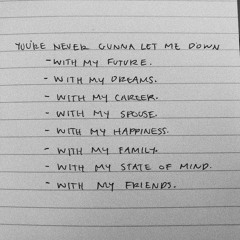 YOU'RE NEVER GUNNA LET ME DOWN
- WITH MY FUTURE.
- WITH MY DREAMS.
- WITH MY CAREER.
- WITH MY SPOUSE.
- WITH MY HAPPINESS.
- WITH MY FAMILY.
- WITH MY STATE OF MIND.
- WITH MY FRIENDS.